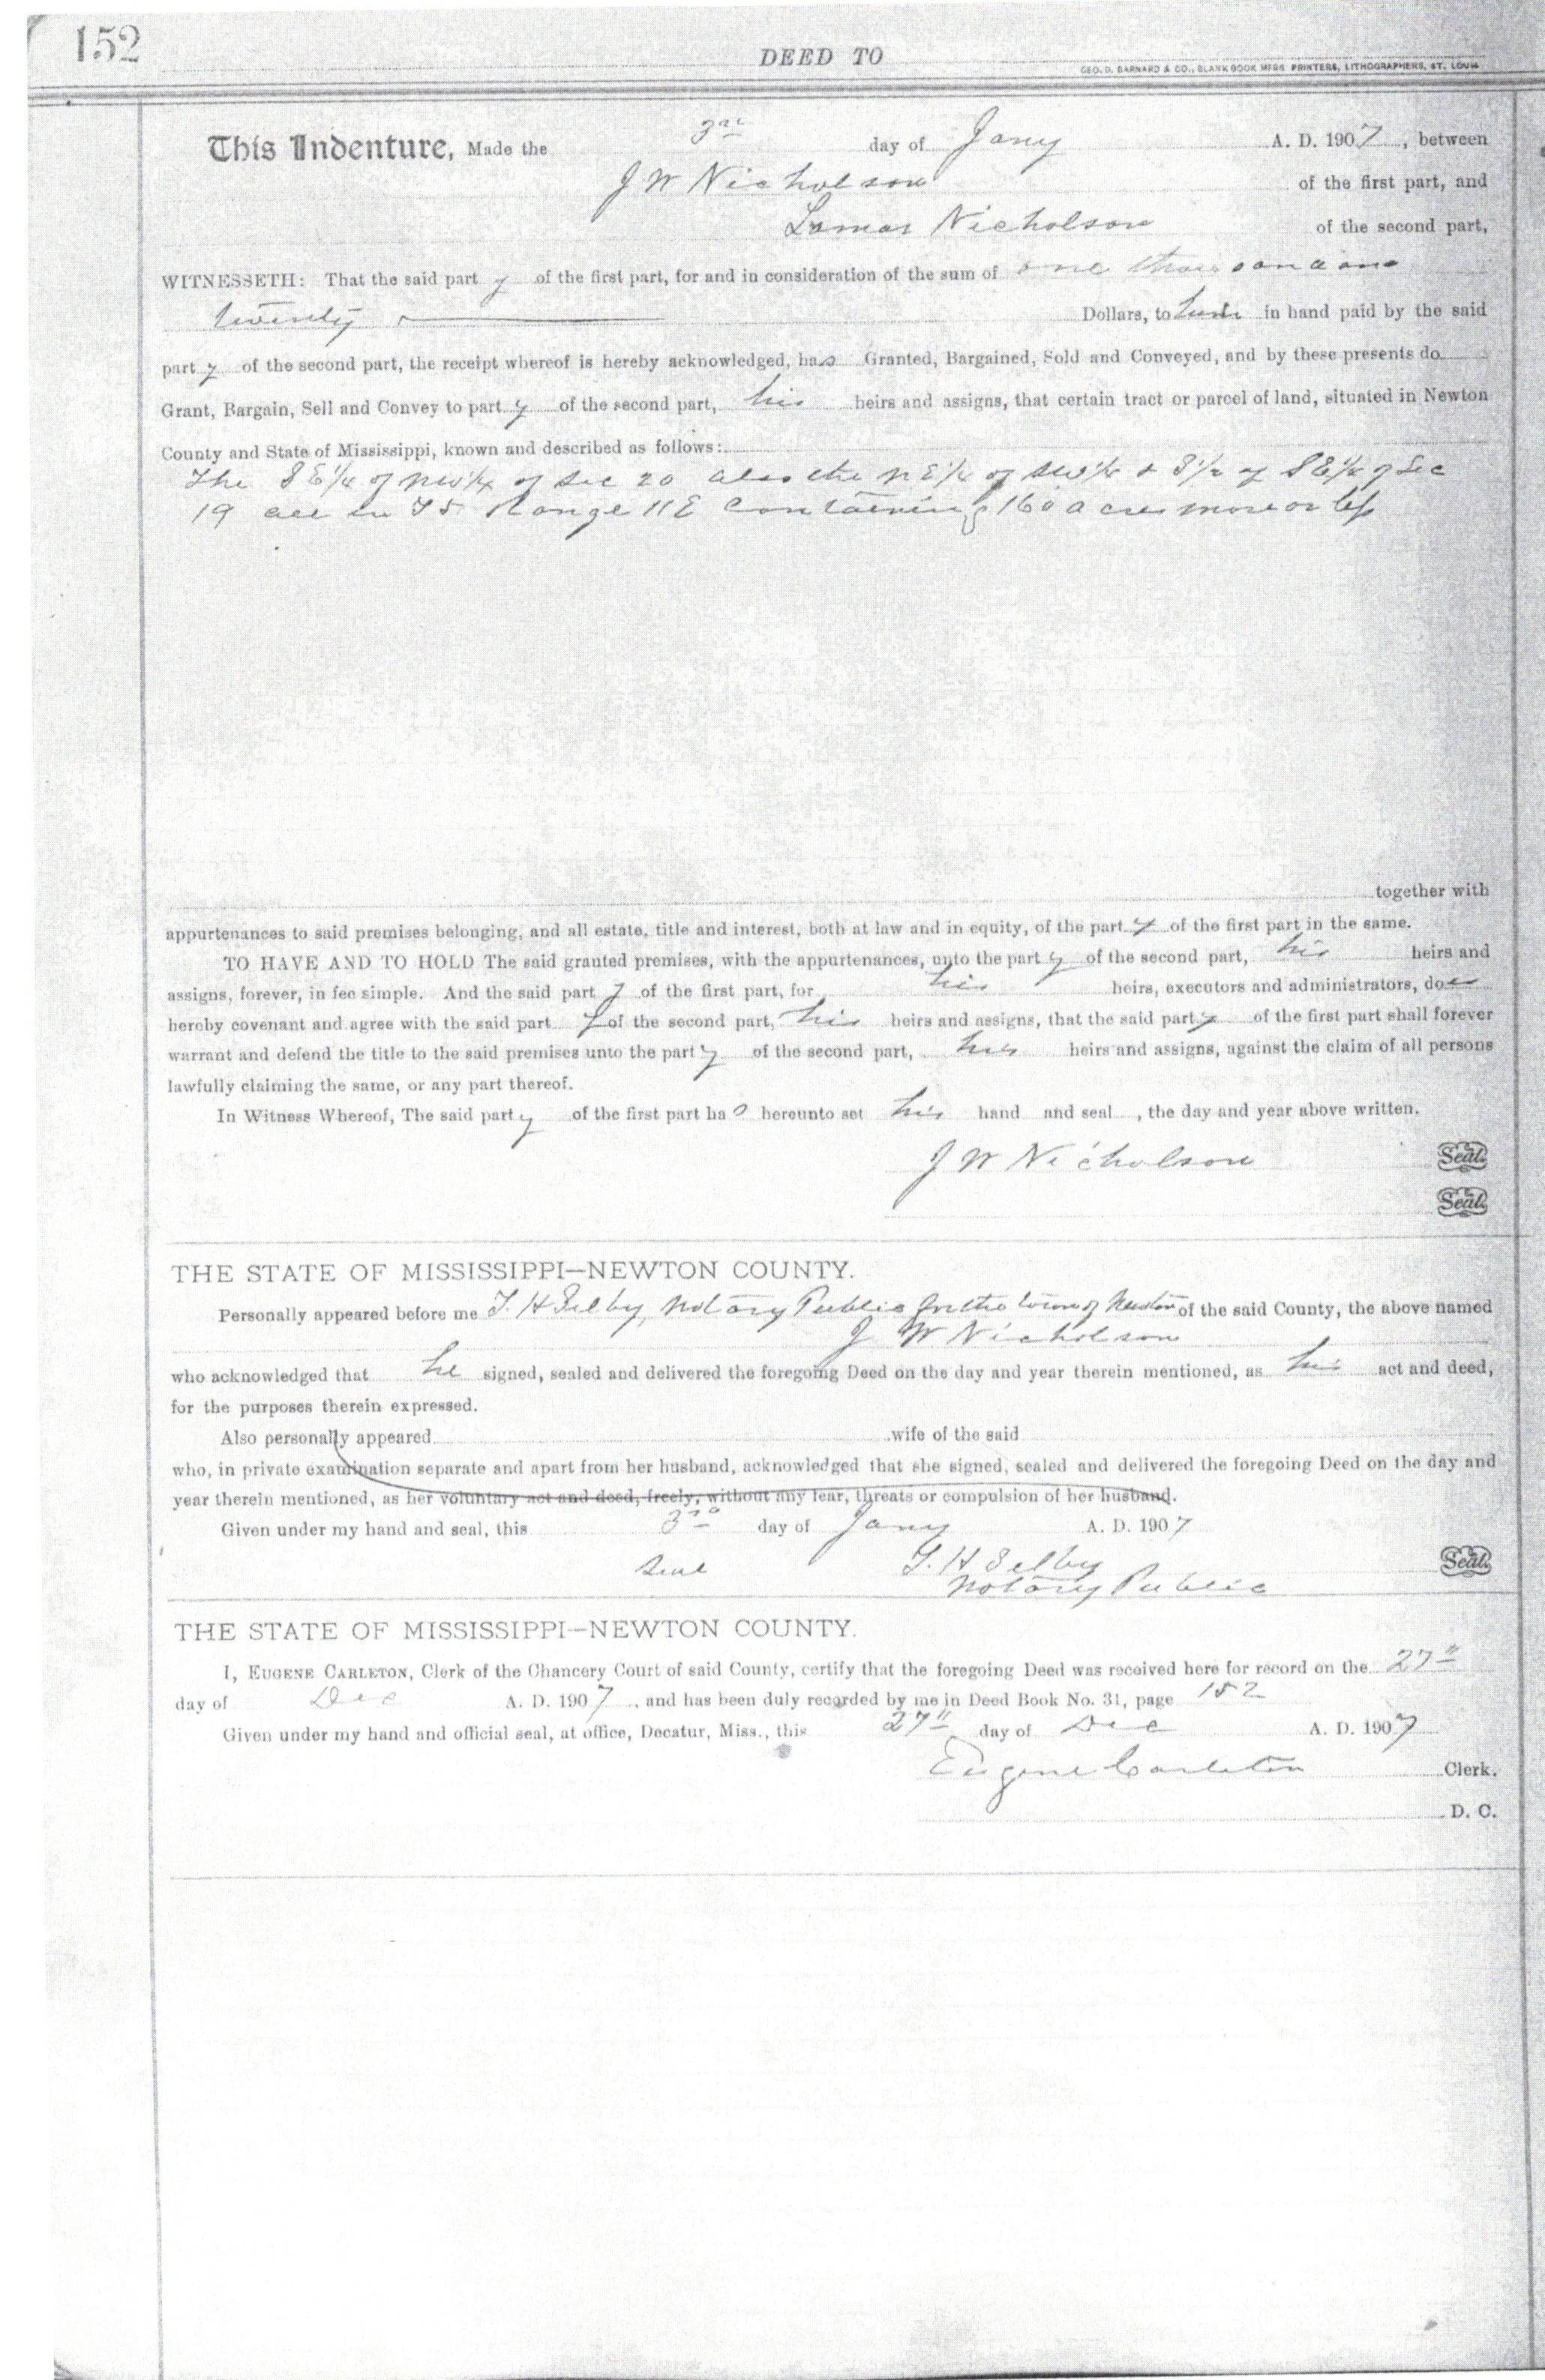 152
DEED TO
GEO. D. BARNARD & CO., BLANK BOOK MFRS PRINTERS, LITHOGRAPHERS, ST. LOUIS
This Indenture, Made the 3rd day of Jany A. D. 1907, between
J W Nicholson of the first part, and
Lamar Nicholson of the second part,
WITNESSETH: That the said party of the first part, for and in consideration of the sum of one thousand and
twenty Dollars, to him in hand paid by the said
party of the second part, the receipt whereof is hereby acknowledged, has Granted, Bargained, Sold and Conveyed, and by these presents do
Grant, Bargain, Sell and Convey to party of the second part, his heirs and assigns, that certain tract or parcel of land, situated in Newton
County and State of Mississippi, known and described as follows:
The SE 1/4 of NW 1/4 of Sec 20 also the NE 1/4 of SW 1/4 & S 1/2 of SE 1/4 of Sec
19 all in T5 Range 11 E Containing 160 acres more or less
together with
appurtenances to said premises belonging, and all estate, title and interest, both at law and in equity, of the party of the first part in the same.
TO HAVE AND TO HOLD The said granted premises, with the appurtenances, unto the party of the second part, his heirs and
assigns, forever, in fee simple. And the said party of the first part, for his heirs, executors and administrators, does
hereby covenant and agree with the said party of the second part, his heirs and assigns, that the said party of the first part shall forever
warrant and defend the title to the said premises unto the party of the second part, his heirs and assigns, against the claim of all persons
lawfully claiming the same, or any part thereof.
In Witness Whereof, The said party of the first part has hereunto set his hand and seal , the day and year above written.
J W Nicholson Seal.
Seal.
THE STATE OF MISSISSIPPI—NEWTON COUNTY.
Personally appeared before me T. H Selby, Notary Public for the town of Newton of the said County, the above named
J W Nicholson
who acknowledged that he signed, sealed and delivered the foregoing Deed on the day and year therein mentioned, as his act and deed,
for the purposes therein expressed.
Also personally appeared wife of the said
who, in private examination separate and apart from her husband, acknowledged that she signed, sealed and delivered the foregoing Deed on the day and
year therein mentioned, as her voluntary act and deed, freely, without any fear, threats or compulsion of her husband.
Given under my hand and seal, this 3rd day of Jany A. D. 1907
Seal T. H Selby Seal.
Notary Public
THE STATE OF MISSISSIPPI—NEWTON COUNTY.
I, EUGENE CARLETON, Clerk of the Chancery Court of said County, certify that the foregoing Deed was received here for record on the 27"
day of Dec A. D. 1907, and has been duly recorded by me in Deed Book No. 31, page 152
Given under my hand and official seal, at office, Decatur, Miss., this 27" day of Dec A. D. 1907
Eugene Carleton Clerk.
D. C.